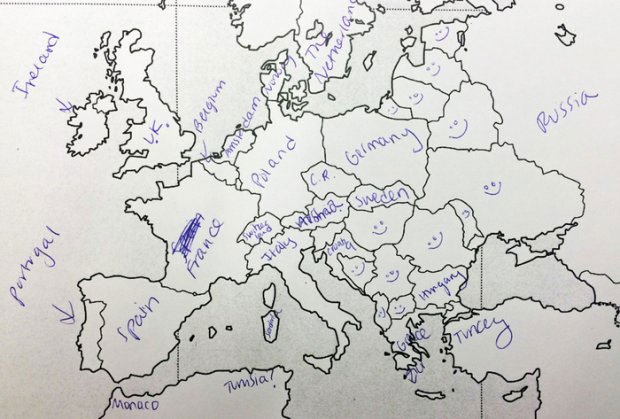 Ireland
U.K.
Belgium
Amsterdam
Norway
The
Netherlands
Russia
Poland
Germany
C.R.
Austria
Sweden
Switzer
land
France
Italy
Croatia
Hungary
Portugal
Spain
Greece
Turkey
Monaco
Tunisia?